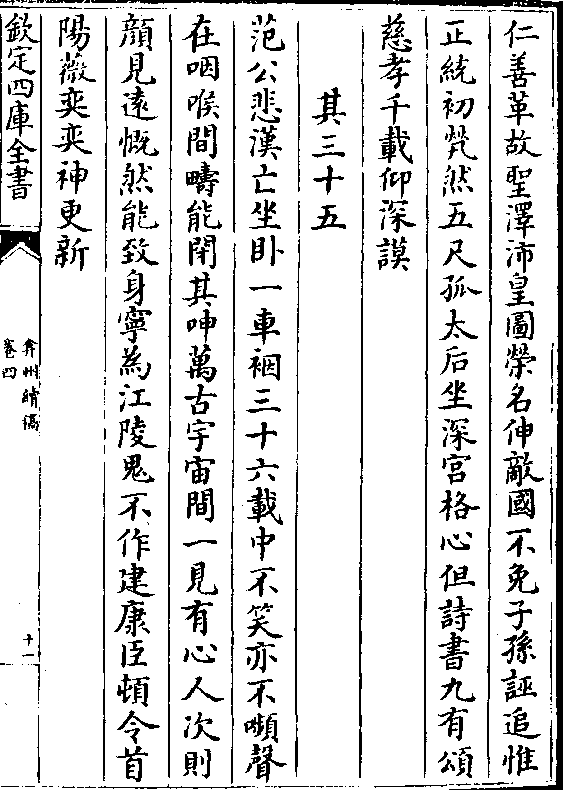 仁善革故聖澤沛皇圖榮名伸敵國不免子孫誣追惟
正統初煢然五尺孤太后坐深宮格心但詩書九有頌
慈孝千載仰深謨
其三十五
范公悲漢亡坐卧一車裀三十六載中不笑亦不嚬聲
在咽喉間疇能閉其呻萬古宇宙間一見有心人次則
顔見逺慨然能致身寧為江陵鬼不作建康臣頓令首
陽薇奕奕神更新
欽定四庫全書
弇州續稿
卷四
十一